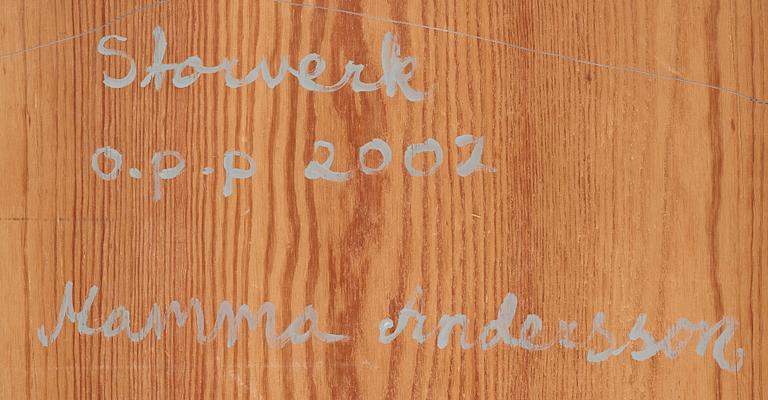 Storverk
o.p.p 2002
Mamma Andersson